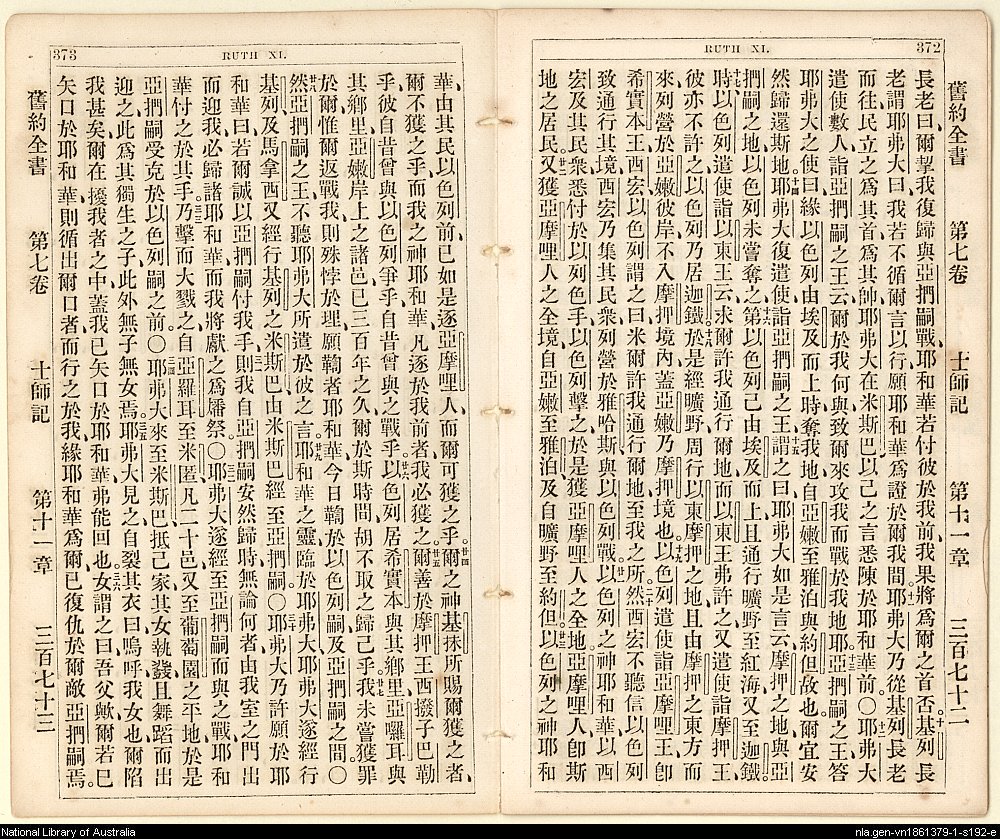 372
RUTH XI.
舊約全書 第七卷 士師記 第十一章 三百七十二
長老曰、爾挈我復歸與亞捫嗣戰、耶和華若付彼於我前、我果將爲爾之首否。十基列長
老謂耶弗大曰、我若不循爾言以行、願耶和華爲證於爾我間。十一耶弗大乃從基列長老
而往、民立之爲其首、爲其帥、耶弗大在米斯巴以己之言悉陳於耶和華前。〇耶弗大
遣使數人詣亞捫嗣之王云、爾於我何與、致爾來攻我而戰於我地耶。十三亞捫嗣之王答
耶弗大之使曰、緣以色列由埃及而上時、奪我地、自亞嫩至雅泊與約但、故也、爾宜安
然歸還斯地。十四耶弗大復遣使詣亞捫嗣之王、十五謂之曰、耶弗大如是言云、摩押之地與亞
捫嗣之地、以色列未嘗奪之。十六第以色列己由埃及而上、且通行曠野至紅海、又至迦鐵
時、十七以色列遣使詣以東王云、求爾許我通行爾地、而以東王弗許之、又遣使詣摩押王、
彼亦不許之、以色列乃居迦鐵。十八於是經曠野、周行以東摩押之地、且由摩押之東方而
來、列營於亞嫩彼岸、不入摩押境內、蓋亞嫩乃摩押境也。十九以色列遣使詣亞摩哩王、卽
希實本王西宏、以色列謂之曰、米爾許我通行爾地至我之所。二十然西宏不聽信以色列
致通行其境、西宏乃集其民衆、列營於雅哈斯、與以色列戰。廿一以色列之神耶和華以西
宏及其民衆悉付於以色列手、以色列擊之、於是以色列獲亞摩哩人之全地、亞摩哩人卽斯
地之居民、廿二又獲亞摩哩人之全境、自亞嫩至雅泊、及自曠野至約但。廿三以色列之神耶和
373
RUTH XI.
華、由其民以色列前、已如是逐亞摩哩人、而爾可獲之乎。廿四爾之神基抹所賜爾獲之者、
爾不獲之乎、而我之神耶和華、凡逐於我前者、我必獲之。廿五爾善於摩押王西撥子巴勒
乎、彼自昔曾與以色列爭乎、自昔曾與之戰乎。廿六以色列居希實本與其鄉里、亞囉耳與
其鄉里、亞嫩岸上之諸邑、已三百年之久、爾於斯時間、胡不取之歸己乎。廿七我未嘗獲罪
於爾、惟爾返戰我、則殊悖於理、願鞫者耶和華、今日鞫於以色列嗣及亞捫嗣之間。〇
廿八然亞捫嗣之王不聽耶弗大所遣於彼之言。廿九耶和華之靈臨於耶弗大、耶弗大遂經行
基列及馬拿西、又經行基列之米斯巴、由米斯巴經至亞捫嗣。〇三十耶弗大乃許願於耶
和華曰、若爾誠以亞捫嗣付我手、三一則我自亞捫嗣安然歸時、無論何者由我室之門出
而迎我、必歸諸耶和華、而我將獻之爲燔祭。〇三二耶弗大遂經至亞捫嗣而與之戰、耶和
華付之於其手。三三乃擊而大戮之、自亞羅耳至米匿、凡二十邑、又至葡萄園之平地、於是
亞捫嗣受克於以色列嗣之前。〇三四耶弗大來至米斯巴、抵己家、其女執鼗且舞蹈而出
迎之、此爲其獨生之子、此外無子無女焉。三五耶弗大見之、自裂其衣曰、嗚呼我女也、爾陷
我甚矣、爾在擾我者之中、蓋我已矢口於耶和華、弗能回也。三六女謂之曰、吾父歟、爾若已
矢口於耶和華、則循出爾口者而行之於我、緣耶和華爲爾已復仇於爾敵亞捫嗣焉。
舊約全書 第七卷 士師記 第十一章 三百七十三
National Library of Australia
nla.gen-vn1861379-1-s192-e